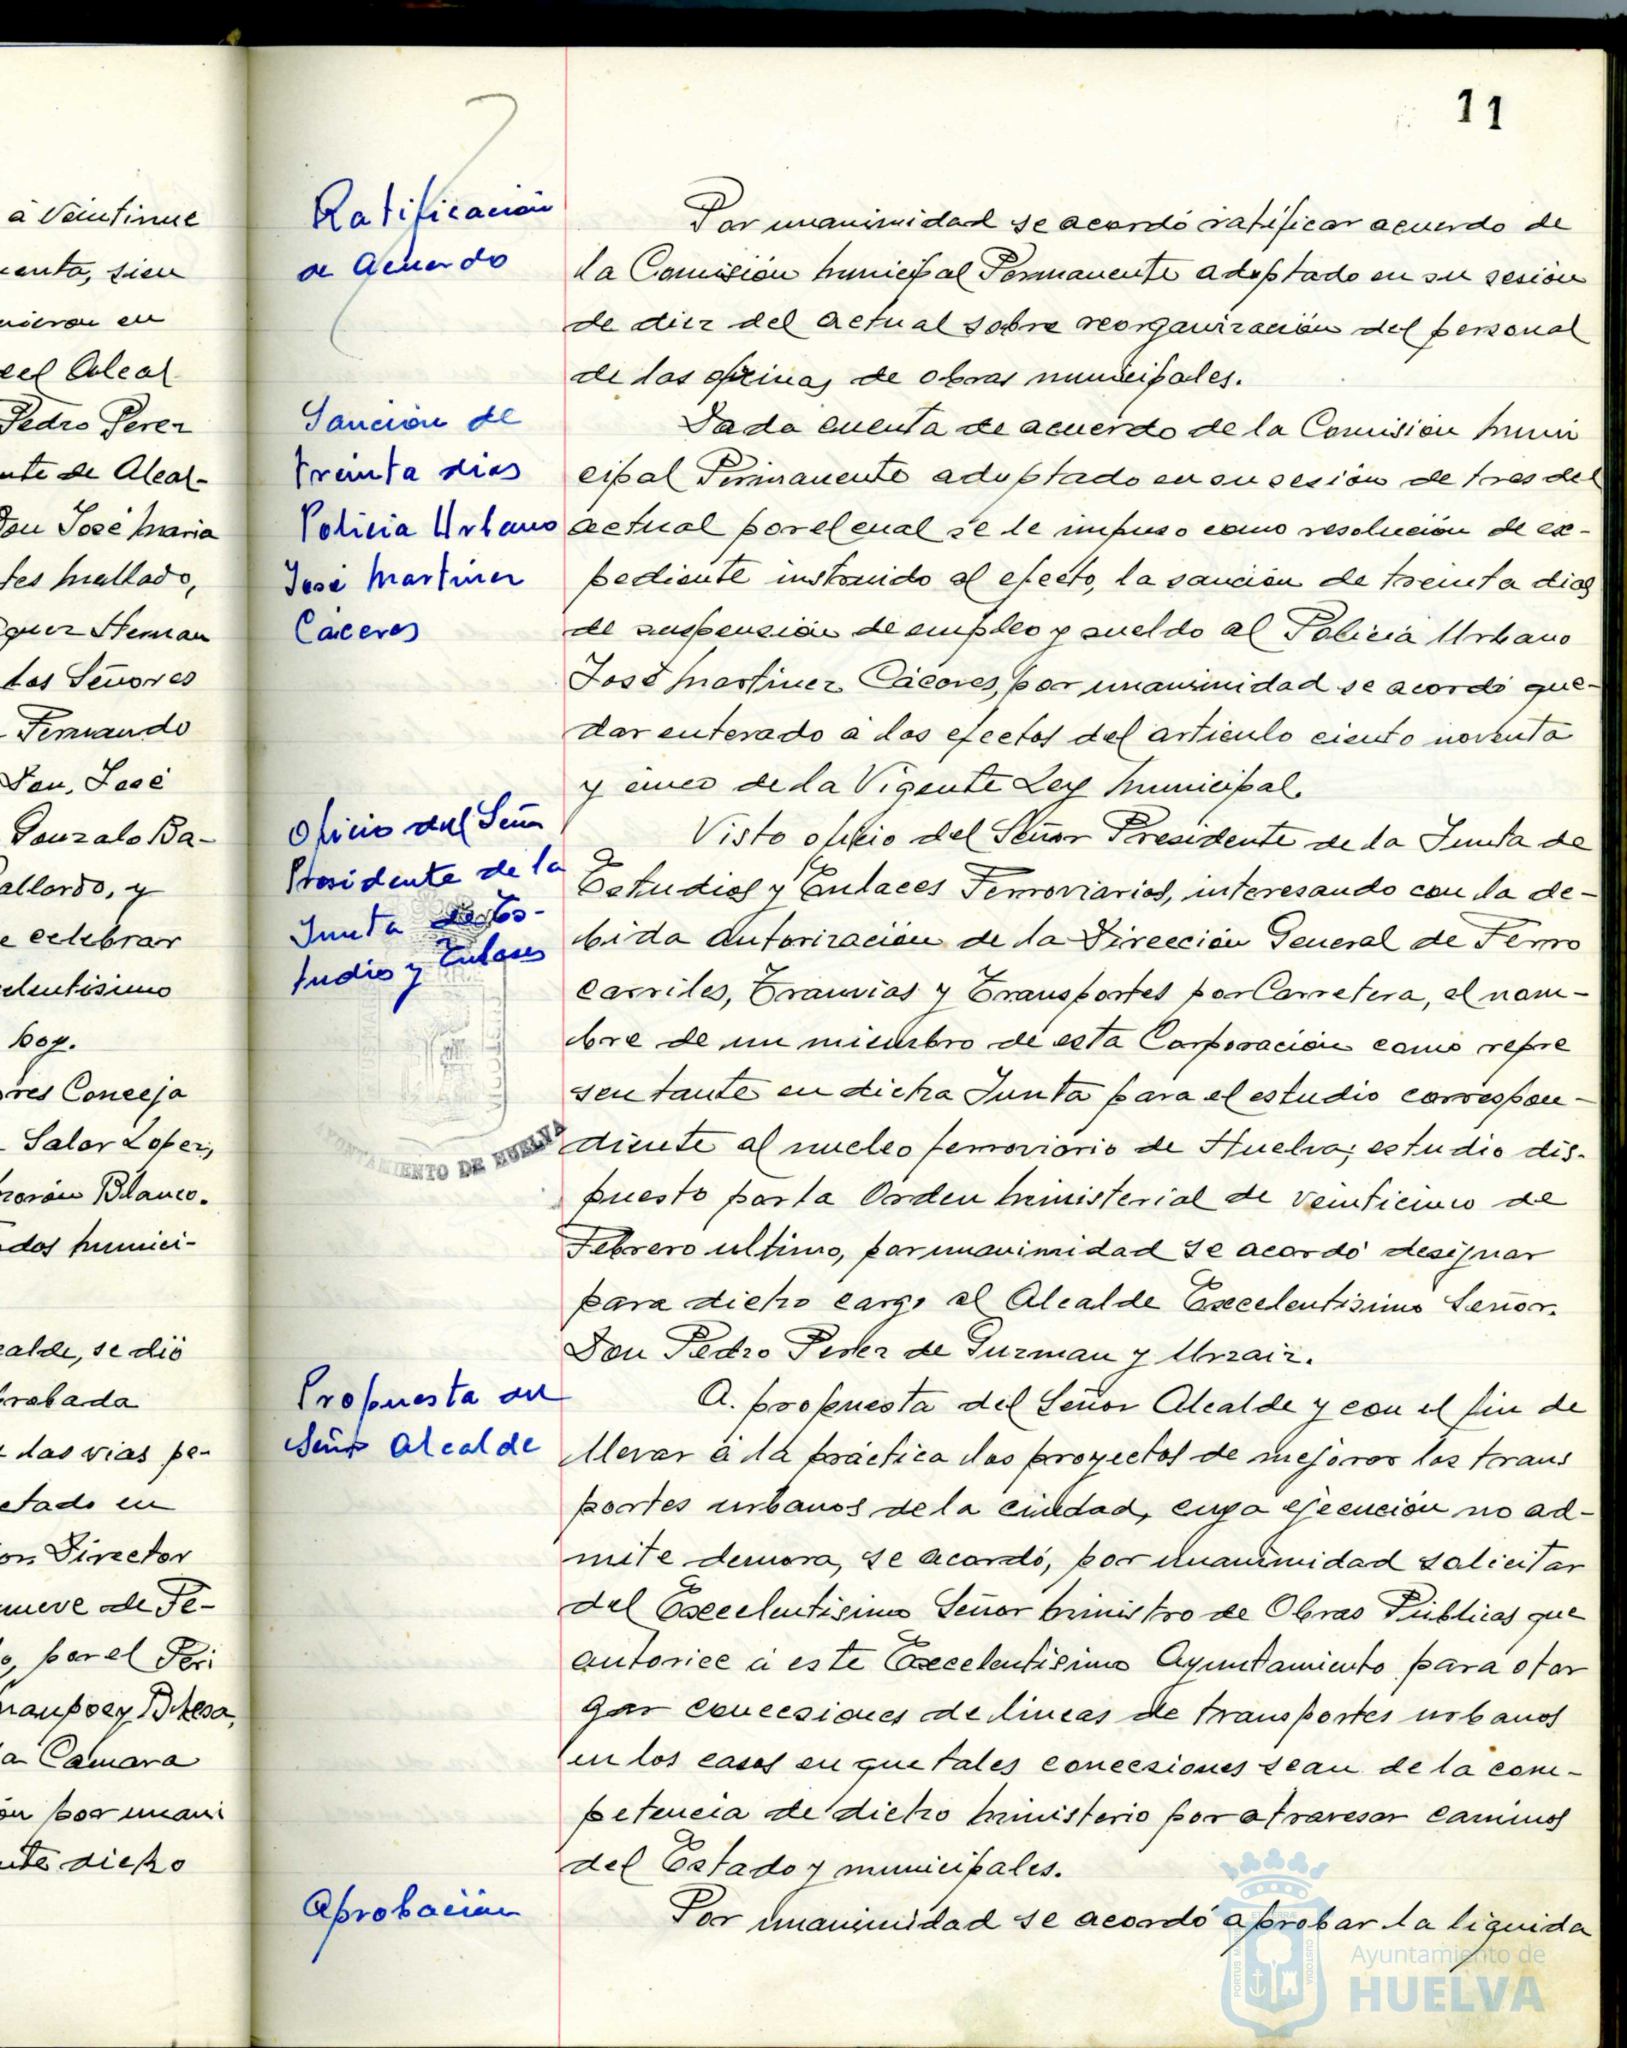 11
á Veintinue
cuenta, sien
nieron en
del Alcal
Pedro Perez
nte de Alcal-
Don José Maria
tes Mallado,
guez Hernan
los Señores
Fernando
Don José
Gonzalo Ba-
allardo, y
e celebrar
elentisimo
hoy.
ores Conceja
Salar Lopez,
morón Blanco.
dos munici-
calde, se dió
probada
las vias pe-
etado en
or Director
nueve de Fe-
o, por el Peri
a Camara
ón por unani
nte dicho
Ratificación
de Acuerdo
Por unanimidad se acordó ratificar acuerdo de
la Comisión Municipal Permanente adoptado en su sesión
de diez del actual sobre reorganización del personal
de las oficinas de obras municipales.
Sanción de
treinta dias
Policia Urbano
José Martinez
Cáceres
Dada cuenta de acuerdo de la Comisión Muni
cipal Permanente adoptado en su sesión de tres del
actual por el cual se le impuso como resolución de ex-
pediente instruido al efecto, la sanción de treinta dias
de suspensión de empleo y sueldo al Policia Urbano
José Martinez Cáceres, por unanimidad se acordó que-
dar enterado á los efectos del articulo ciento noventa
y cinco de la Vigente Ley Municipal.
Oficio del Señor
Presidente de la
Junta de Es-
tudios y Enlaces
Visto oficio del Señor Presidente de la Junta de
Estudios y Enlaces Ferroviarios, interesando con la de-
bida autorización de la Dirección General de Ferro
carriles, Tranvias y Transportes por Carretera, el nom-
bre de un miembro de esta Corporación como repre
sentante en dicha Junta para el estudio correspon-
diente al nucleo ferroviario de Huelva; estudio dis-
puesto por la Orden Ministerial de veinticinco de
Febrero ultimo, por unanimidad se acordó designar
para dicho cargo al Alcalde Excelentisimo Señor.
Don Pedro Perez de Guzman y Urzaiz.
AYUNTAMIENTO DE HUELVA
Propuesta del
Señor Alcalde
A. propuesta del Señor Alcalde y con el fin de
llevar á la práctica los proyectos de mejorar los trans
portes urbanos de la ciudad, cuya ejecución no ad-
mite demora, se acordó, por unanimidad solicitar
del Excelentisimo Señor Ministro de Obras Públicas que
autorice á este Excelentisimo Ayuntamiento para otor
gar concesiones de lineas de transportes urbanos
en los casos en que tales concesiones sean de la com-
petencia de dicho Ministerio por atravesar caminos
del Estado y municipales.
Aprobación
Por unanimidad se acordó aprobar la liquida
Ayuntamiento de
HUELVA